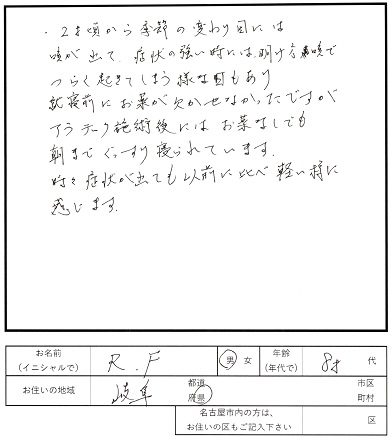 ・2才頃から季節の変わり目には
咳が出て、症状の強い時には、明け方咳で
つらく起きてしまう様な日もあり
就寝前にお薬が欠かせなかったですが
アラテック施術後にはお薬なしでも
朝までぐっすり寝られています。
時々症状が出ても以前に比べ軽い様に
感じます。
お名前
(イニシャルで) R.F 男 女 年齢
(年代で) 8才 代
お住いの地域 岐阜 都道
府県 市区
町村
名古屋市内の方は、
お住いの区もご記入下さい 区